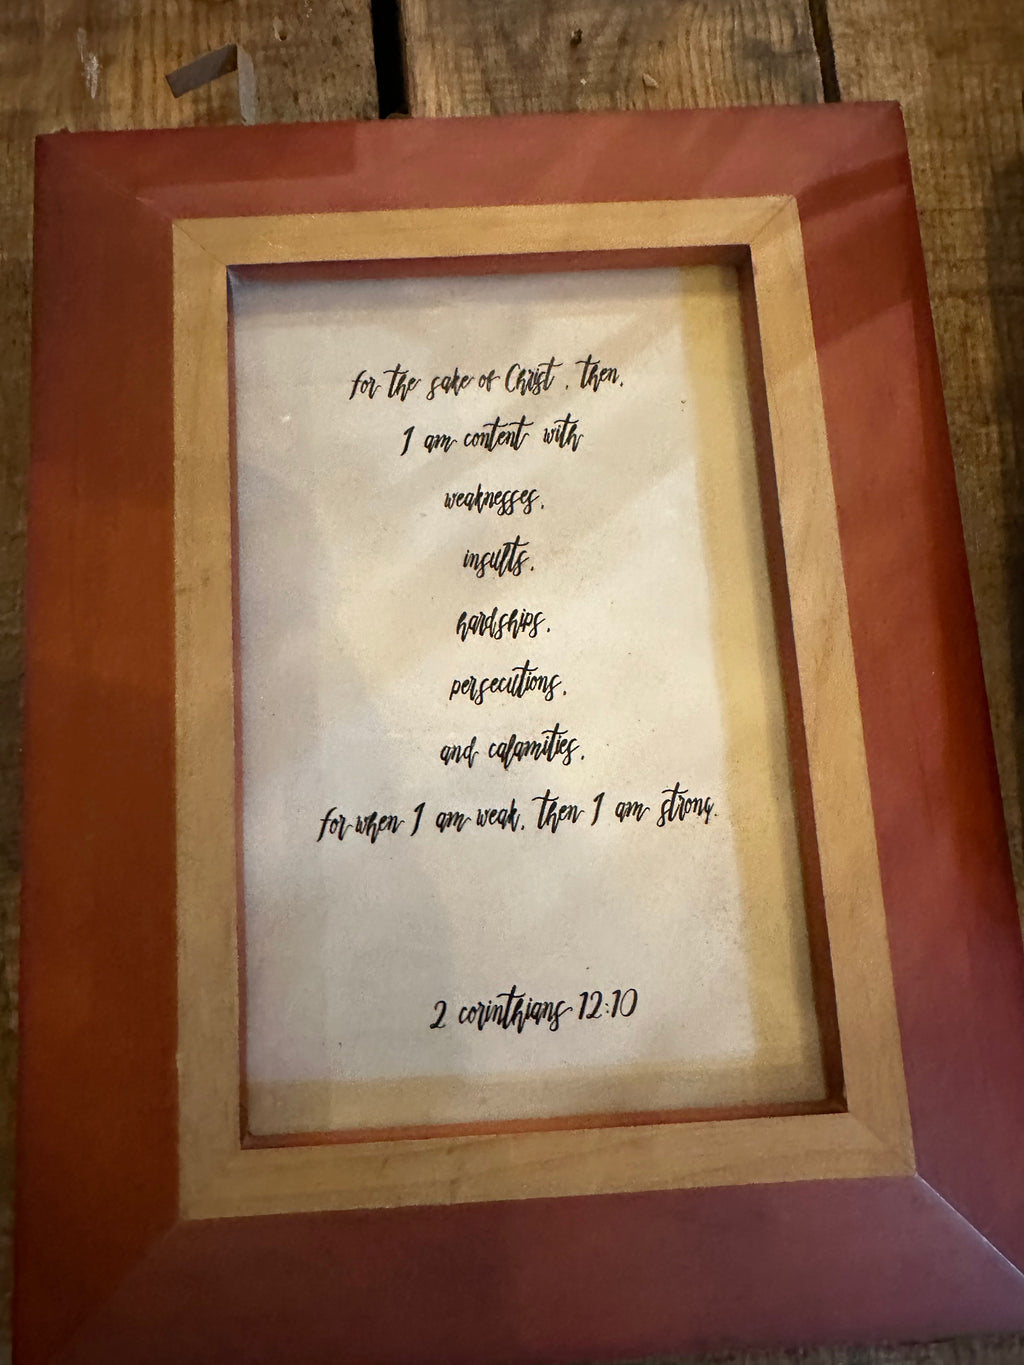 for the sake of Christ, then,
I am content with
weaknesses,
insults,
hardships,
persecutions,
and calamities.
for when I am weak, then I am strong.
2 corinthians 12:10